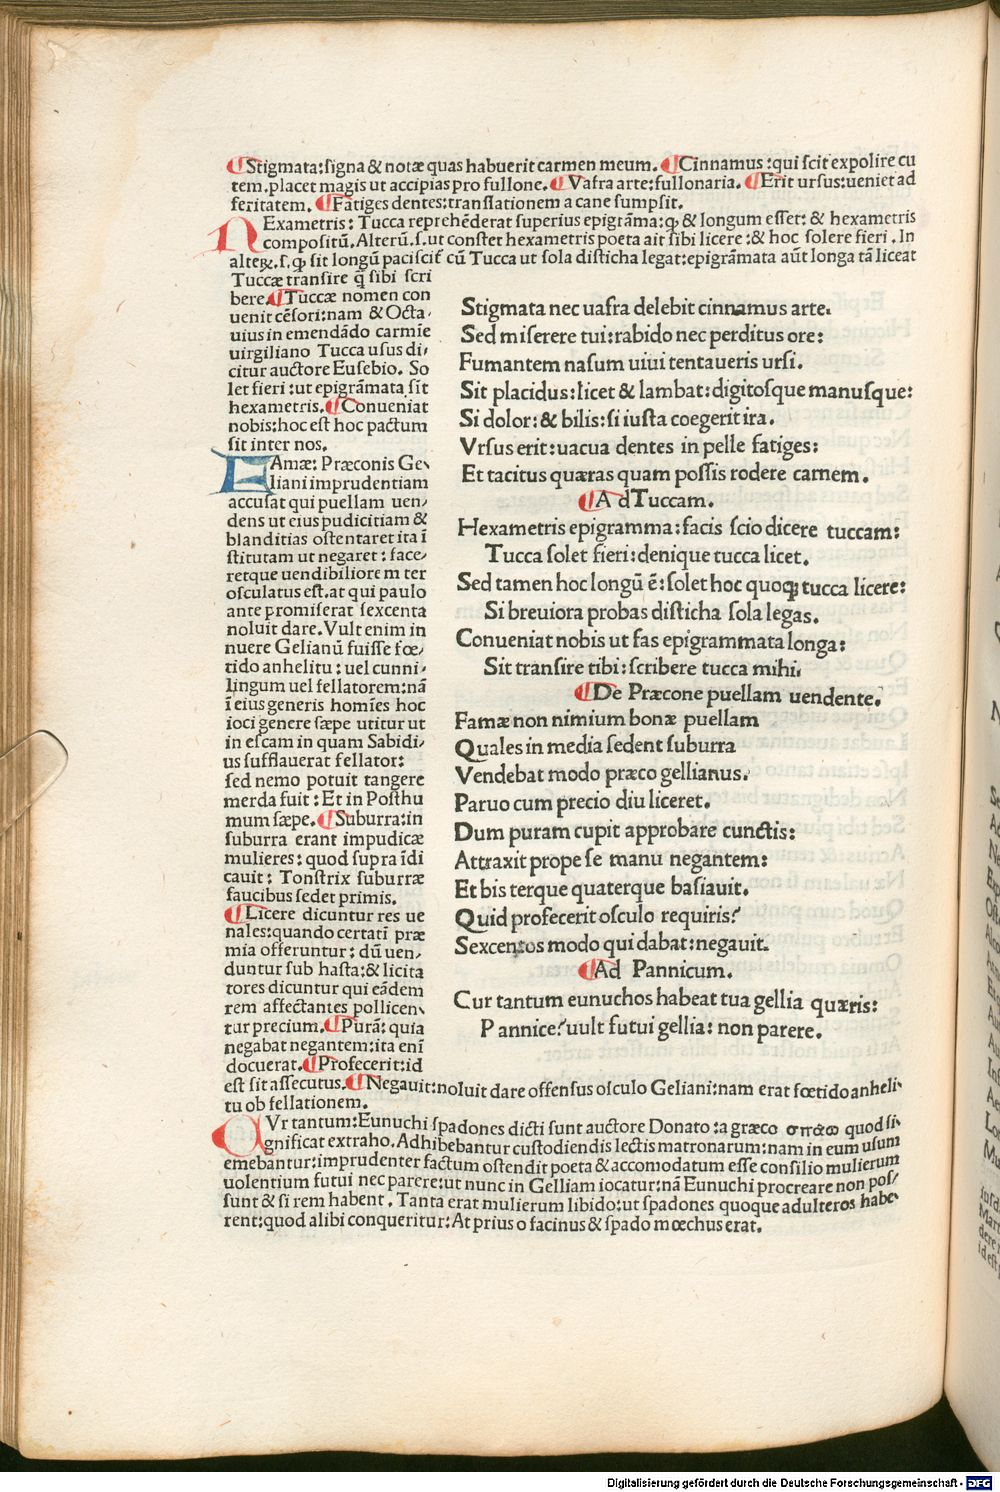 ¶Stigmata:signa & notæ quas habuerit carmen meum. ¶Cinnamus:qui scit expolire cu
tem.placet magis ut accipias pro fullone.¶Vafra arte:fullonaria. ¶Erit ursus:ueniet ad
feritatem. ¶Fatiges dentes:translationem a cane sumpsit.
Exametris: Tucca reprehēderat superius epigrāma:ꝙ & longum esset: & hexametris
compositū. Alterū.s.ut constet hexametris poeta ait sibi licere:& hoc solere fieri. In
alteꝝ.s.ꝙ sit longū paciscit̄ cū Tucca ut sola disticha legat:epigrāmata aūt longa tā liceat
Tuccæ transire q̄ sibi scri
bere.¶Tuccæ nomen con
uenit cēsori:nam & Octa/
uius in emendādo carmīe
uirgiliano Tucca usus di/
citur auctore Eusebio. So
let fieri:ut epigrāmata sit
hexametris.¶Conueniat
nobis:hoc est hoc pactum
sit inter nos.
FAmæ: Præconis Ge/
liani imprudentiam
accusat qui puellam uen/
dens ut eius pudicitiam &
blanditias ostentaret ita ī
stitutam ut negaret: face/
retque uendibiliorem ter
osculatus est.at qui paulo
ante promiserat sexcenta
noluit dare. Vult enim in
nuere Gelianū fuisse fœ/
tido anhelitu: uel cunni/
lingum uel fellatorem:nā
ī eius generis homīes hoc
ioci genere sæpe utitur ut
in escam in quam Sabidi/
us sufflauerat fellator:
sed nemo potuit tangere
merda fuit: Et in Posthu
mum sæpe.¶Suburra:in
suburra erant impudicæ
mulieres: quod supra īdi
cauit: Tonstrix suburræ
faucibus sedet primis.
¶Licere dicuntur res ue
nales:quando certatī præ
mia offeruntur: dū uen/
duntur sub hasta:& licita
tores dicuntur qui eādem
rem affectantes pollicen/
tur precium.¶Purā: quia
negabat negantem:ita enī
docuerat.¶Profecerit:id
est sit assecutus.¶Negauit:noluit dare offensus osculo Geliani:nam erat fœtido anheli/
tu ob fellationem.
Stigmata nec uafra delebit cinnamus arte.
Sed miserere tui:rabido nec perditus ore:
Fumantem nasum uiui tentaueris ursi.
Sit placidus:licet & lambat:digitosque manusque:
Si dolor:& bilis:si iusta coegerit ira.
Vrsus erit:uacua dentes in pelle fatiges:
Et tacitus quæras quam possis rodere carnem.
¶Ad Tuccam.
Hexametris epigramma:facis scio dicere tuccam:
Tucca solet fieri:denique tucca licet.
Sed tamen hoc longū ē:solet hoc quoqꝫ tucca licere:
Si breuiora probas disticha sola legas.
Conueniat nobis ut fas epigrammata longa:
Sit transire tibi:scribere tucca mihi.
¶De Præcone puellam uendente.
Famæ non nimium bonæ puellam
Quales in media sedent suburra
Vendebat modo præco gellianus.
Paruo cum precio diu liceret.
Dum puram cupit approbare cunctis:
Attraxit prope se manu negantem:
Et bis terque quaterque basiauit.
Quid profecerit osculo requiris?
Sexcentos modo qui dabat:negauit.
¶Ad Pannicum.
Cur tantum eunuchos habeat tua gellia quæris:
Pannice?uult futui gellia: non parere.
CVr tantum:Eunuchi spadones dicti sunt auctore Donato:a græco σπάω quod si/
gnificat extraho. Adhibebantur custodiendis lectis matronarum:nam in eum usum
emebantur:imprudenter factum ostendit poeta & accomodatum esse consilio mulierum
uolentium futui nec parere:ut nunc in Gelliam iocatur:nā Eunuchi procreare non pos/
sunt & si rem habent. Tanta erat mulierum libido:ut spadones quoque adulteros habe/
rent:quod alibi conqueritur: At prius o facinus & spado mœchus erat.
Digitalisierung gefördert durch die Deutsche Forschungsgemeinschaft - DFG